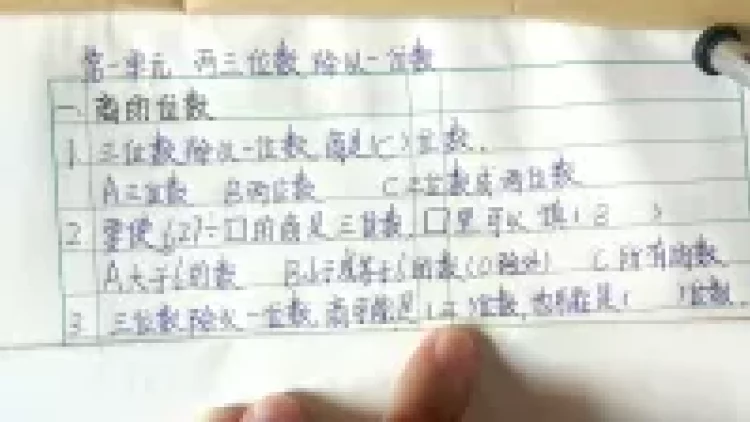 第一单元 两三位数除以一位数
一、商的位数
1. 三位数除以一位数,商是(C)位数.
A 三位数 B 两位数 C 三位数或两位数
2. 要使627÷口的商是三位数,口里可以填(B )
A 大于6的数 B 小于或等于6的数(0除外) C 所有的数
3. 三位数除以一位数,商可能是(三)位数,也可能是( )位数.